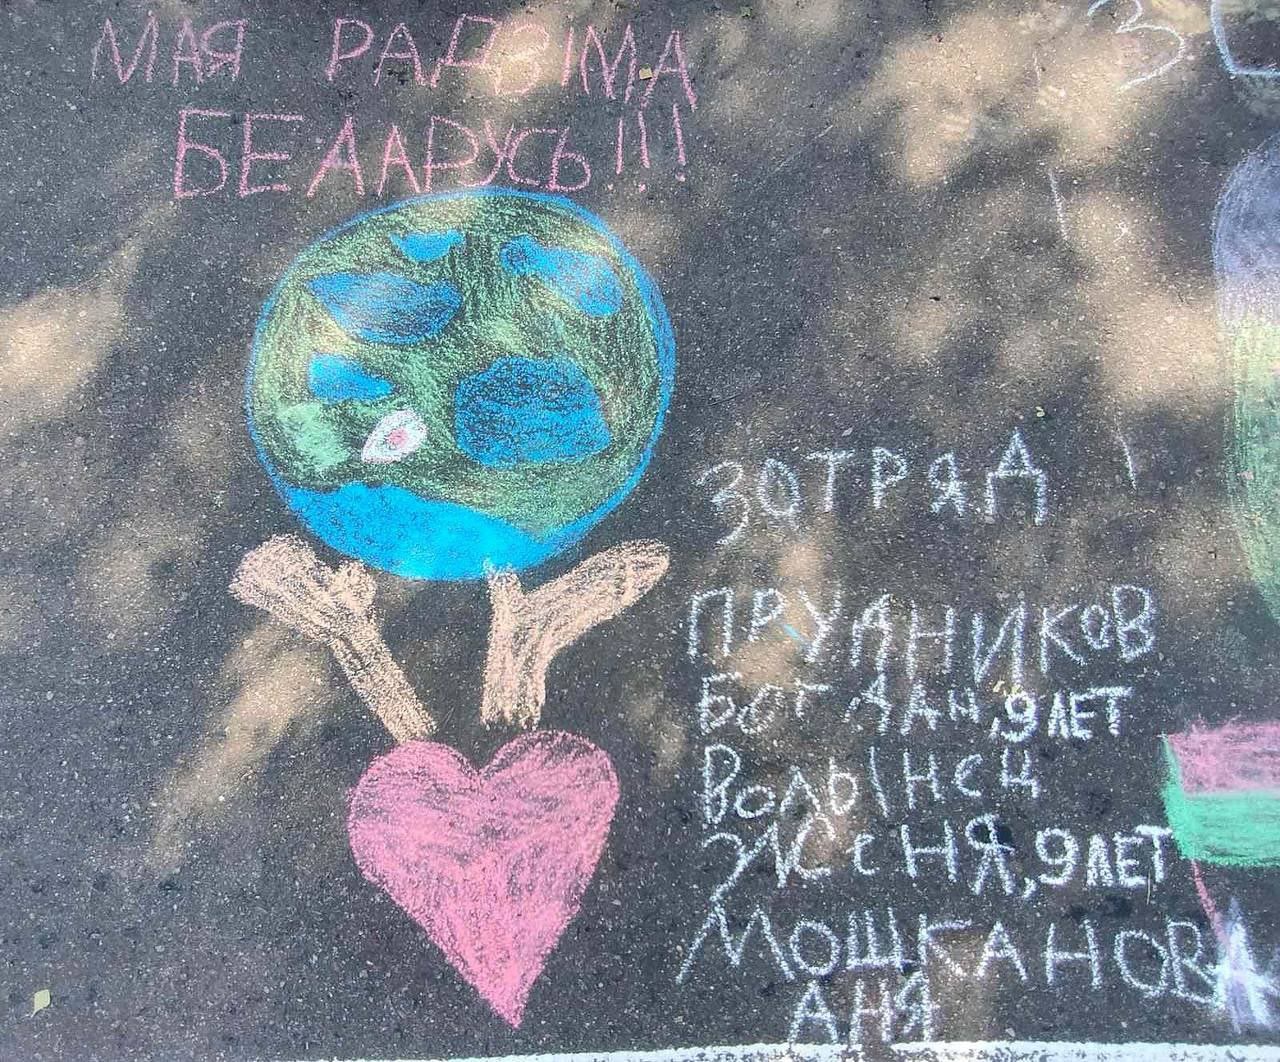 МАЯ РАДЗІМА
БЕЛАРУСЬ!!!
3
3 ОТРЯД
ПРУДНИКОВ
БОГДАН, 9 ЛЕТ
ВОЛЫНЕЦ
ЖЕНЯ, 9 ЛЕТ
МОШКАНОВА
АНЯ